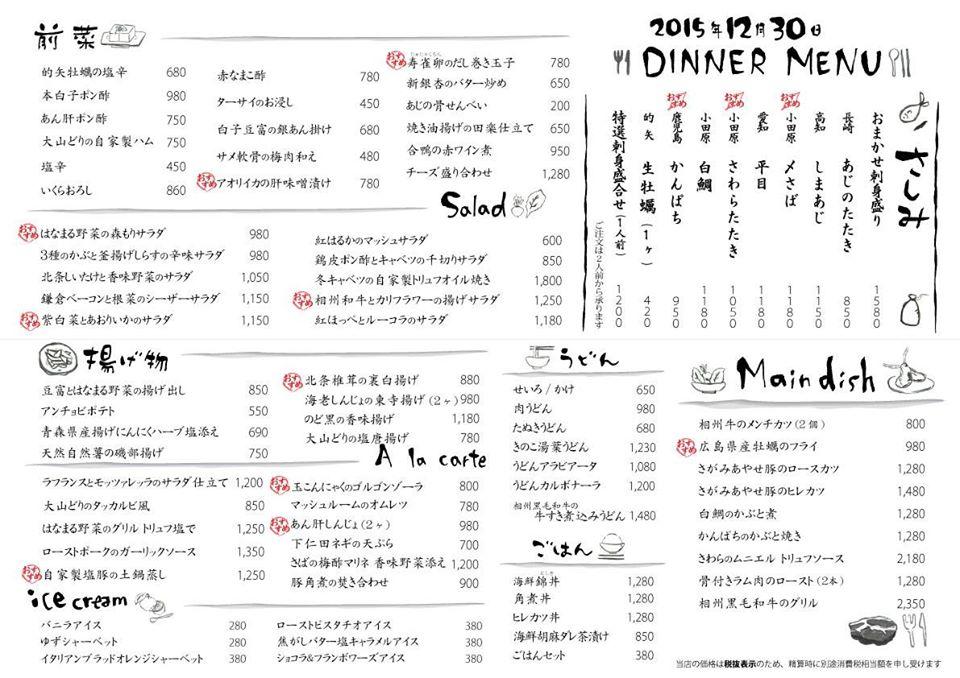 2015年12月30日
DINNER MENU
前菜
的矢牡蠣の塩辛 680
本白子ポン酢 980
あん肝ポン酢 750
大山どりの自家製ハム 750
塩辛 450
いくらおろし 860
赤なまこ酢 780
ターサイのお浸し 450
白子豆富の銀あん掛け 680
サメ軟骨の梅肉和え 480
おすすめ アオリイカの肝味噌漬け 780
おすすめ 寿雀卵のだし巻き玉子 780
じゅじゃくらん
新銀杏のバター炒め 650
あじの骨せんべい 200
焼き油揚げの田楽仕立て 650
合鴨の赤ワイン煮 950
チーズ盛り合わせ 1,280
さしみ
おまかせ刺身盛り 1580
長崎 あじのたたき 850
高知 しまあじ 1150
おすすめ 小田原 〆さば 1180
愛知 平目 1180
おすすめ 小田原 さわらたたき 1050
小田原 白鯛 1180
おすすめ 鹿児島 かんぱち 950
的矢 生牡蠣(1ヶ) 420
特選刺身盛合せ(1人前) 1200
ご注文は2人前から承ります
Salad
おすすめ はなまる野菜の森もりサラダ 980
3種のかぶと釜揚げしらすの辛味サラダ 980
北条しいたけと香味野菜のサラダ 1,050
鎌倉ベーコンと根菜のシーザーサラダ 1,150
おすすめ 紫白菜とあおりいかのサラダ 1,150
紅はるかのマッシュサラダ 600
鶏皮ポン酢とキャベツの千切りサラダ 850
冬キャベツの自家製トリュフオイル焼き 1,800
おすすめ 相州和牛とカリフラワーの揚げサラダ 1,250
紅ほっぺとルーコラのサラダ 1,180
揚げ物
豆富とはなまる野菜の揚げ出し 850
アンチョビポテト 550
青森県産揚げにんにくハーブ塩添え 690
天然自然薯の磯部揚げ 750
おすすめ 北条椎茸の裏白揚げ 880
海老しんじょの東寺揚げ(2ヶ) 980
のど黒の香味揚げ 1,180
大山どりの塩唐揚げ 780
A la carte
ラフランスとモッツァレッラのサラダ仕立て 1,200
大山どりのタッカルビ風 850
はなまる野菜のグリル トリュフ塩で 1,250
ローストポークのガーリックソース 1,350
おすすめ 自家製塩豚の土鍋蒸し 1,250
おすすめ 玉こんにゃくのゴルゴンゾーラ 800
マッシュルームのオムレツ 780
おすすめ あん肝しんじょ(2ヶ) 980
下仁田ネギの天ぷら 700
さばの梅酢マリネ 香味野菜添え 1,200
豚角煮の焚き合わせ 900
ice cream
バニラアイス 280
ゆずシャーベット 280
イタリアンブラッドオレンジシャーベット 380
ローストピスタチオアイス 380
焦がしバター塩キャラメルアイス 380
ショコラ&フランボワーズアイス 380
うどん
せいろ/かけ 650
肉うどん 980
たぬきうどん 680
きのこ湯葉うどん 1,230
うどんアラビアータ 1,080
うどんカルボナーラ 1,200
相州黒毛和牛の
牛すき煮込みうどん 1,480
ごはん
海鮮錦丼 1,280
角煮丼 1,280
ヒレカツ丼 1,280
海鮮胡麻ダレ茶漬け 850
ごはんセット 380
Main dish
相州牛のメンチカツ(2個) 800
おすすめ 広島県産牡蠣のフライ 980
さがみあやせ豚のロースカツ 1,280
さがみあやせ豚のヒレカツ 1,480
白鯛のかぶと煮 1,280
かんぱちのかぶと焼き 1,280
さわらのムニエル トリュフソース 2,180
骨付きラム肉のロースト(2本) 1,280
相州黒毛和牛のグリル 2,350
当店の価格は税抜表示のため、精算時に別途消費税相当額を申し受けます